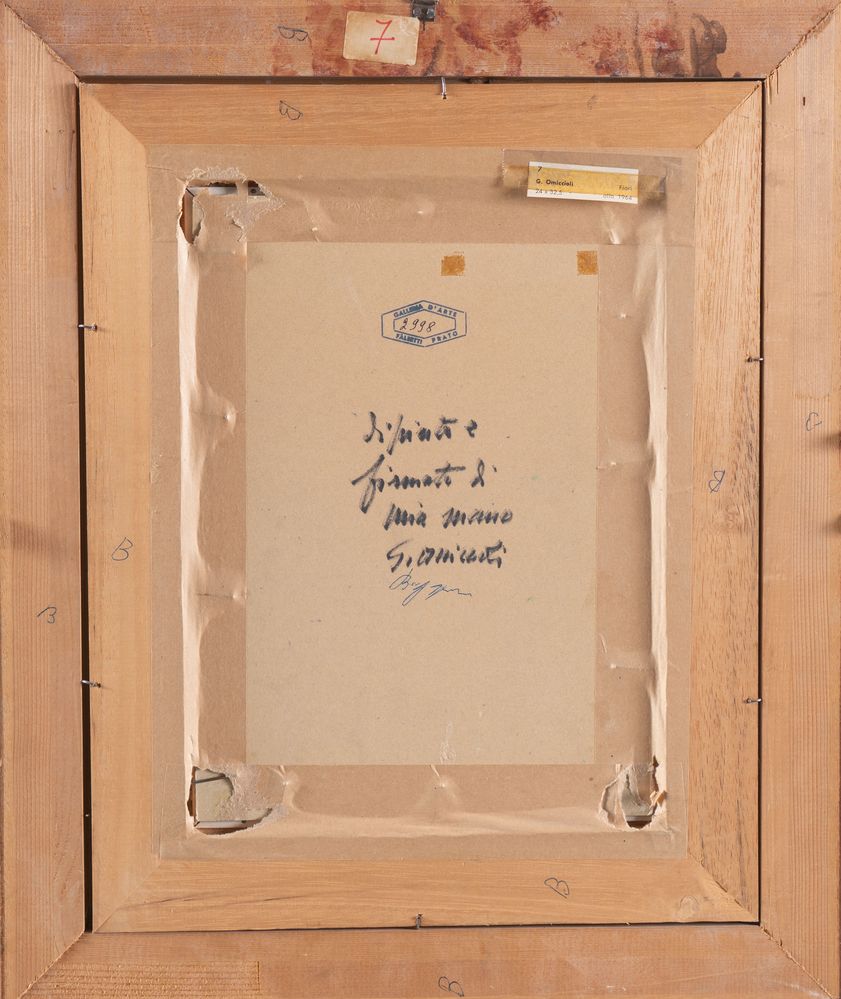 B
7
B
7
G. Omiccioli Fiori
24 x 32,5 olio 1964
GALLERIA D'ARTE
2998
FALSETTI PRATO
dipinto e
firmato di
mia mano
G. Omiccioli
B
B
B
B
B
B